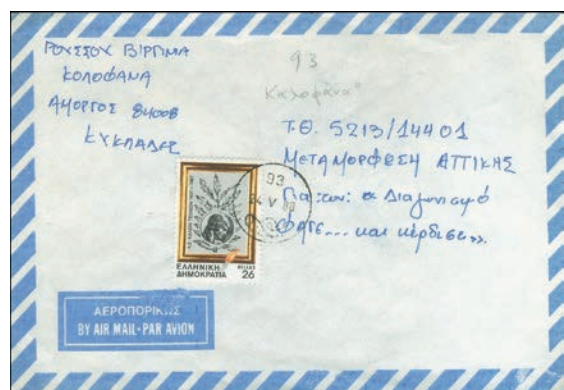 ΡΟΥΣΣΟΥ ΒΙΡΓΙΝΙΑ
ΚΟΛΟΦΑΝΑ
ΑΜΟΡΓΟΣ 84008
ΚΥΚΛΑΔΕΣ
93
Καλοφάνα
Τ.Θ. 5213/14401
ΜΕΤΑΜΟΡΦΩΣΗ ΑΤΤΙΚΗΣ
Για τον: « Διαγωνισμό
... και κέρδισε».
93
V
ΕΛΛΗΝΙΚΗ
ΔΗΜΟΚΡΑΤΙΑ
HELLAS
26
ΑΕΡΟΠΟΡΙΚΩΣ
BY AIR MAIL-PAR AVION